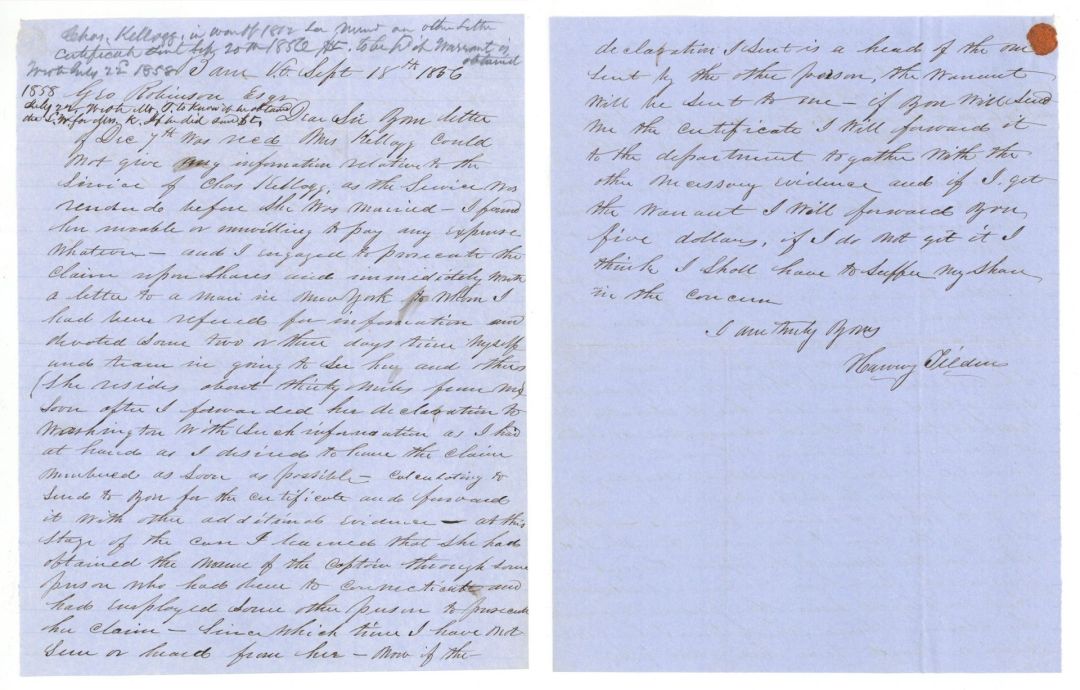 Chas. Kellogg, in war of 1812 see mem'd on other letter
Certificate sent Sep 20th 1856 to be p'd if Warrant is obtained
Wrote July 22d 1858
Barre Vt. Sept 18th 1856
1858 Geo Robinson Esqr
July 22, Wrote Mr. T. to know if he obtained
the L. W. for Mrs. K. If he did send $5,
Dear Sir Your letter
of Dec 7th was recd Mrs Kellogg could
not give any information relative to the
Service of Chas Kellogg, as the Service was
rendered before she was married – I found
her unable or unwilling to pay any expense
whatever – and I engaged to prosecute the
claim upon shares and immediately wrote
a letter to a man in New York to whom I
had been refered for information and
devoted some two or three days time myself
and team in going to see her and others
(She resides about thirty miles from me)
Soon after I forwarded her declaration to
Washington with such information as I had
at hand as I desired to have the claim
numbered as soon as possible – calculating to
send to you for the certificate and forward
it with other additional evidence – at this
stage of the case I learned that she had
obtained the name of the captain through some
person who had been to Connecticut and
had employed some other person to prosecute
her claim – Since which time I have not
seen or heard from her – now if the
declaration I sent is a head of the one
sent by the other person, the warrant
will be sent to me – if you will send
me the certificate I will forward it
to the department together with the
other necessary evidence and if I get
the warrant I will forward you
five dollars, if I do not get it I
think I shall have to suffer my share
in the concern
I am truly yours
Harvey Tilden